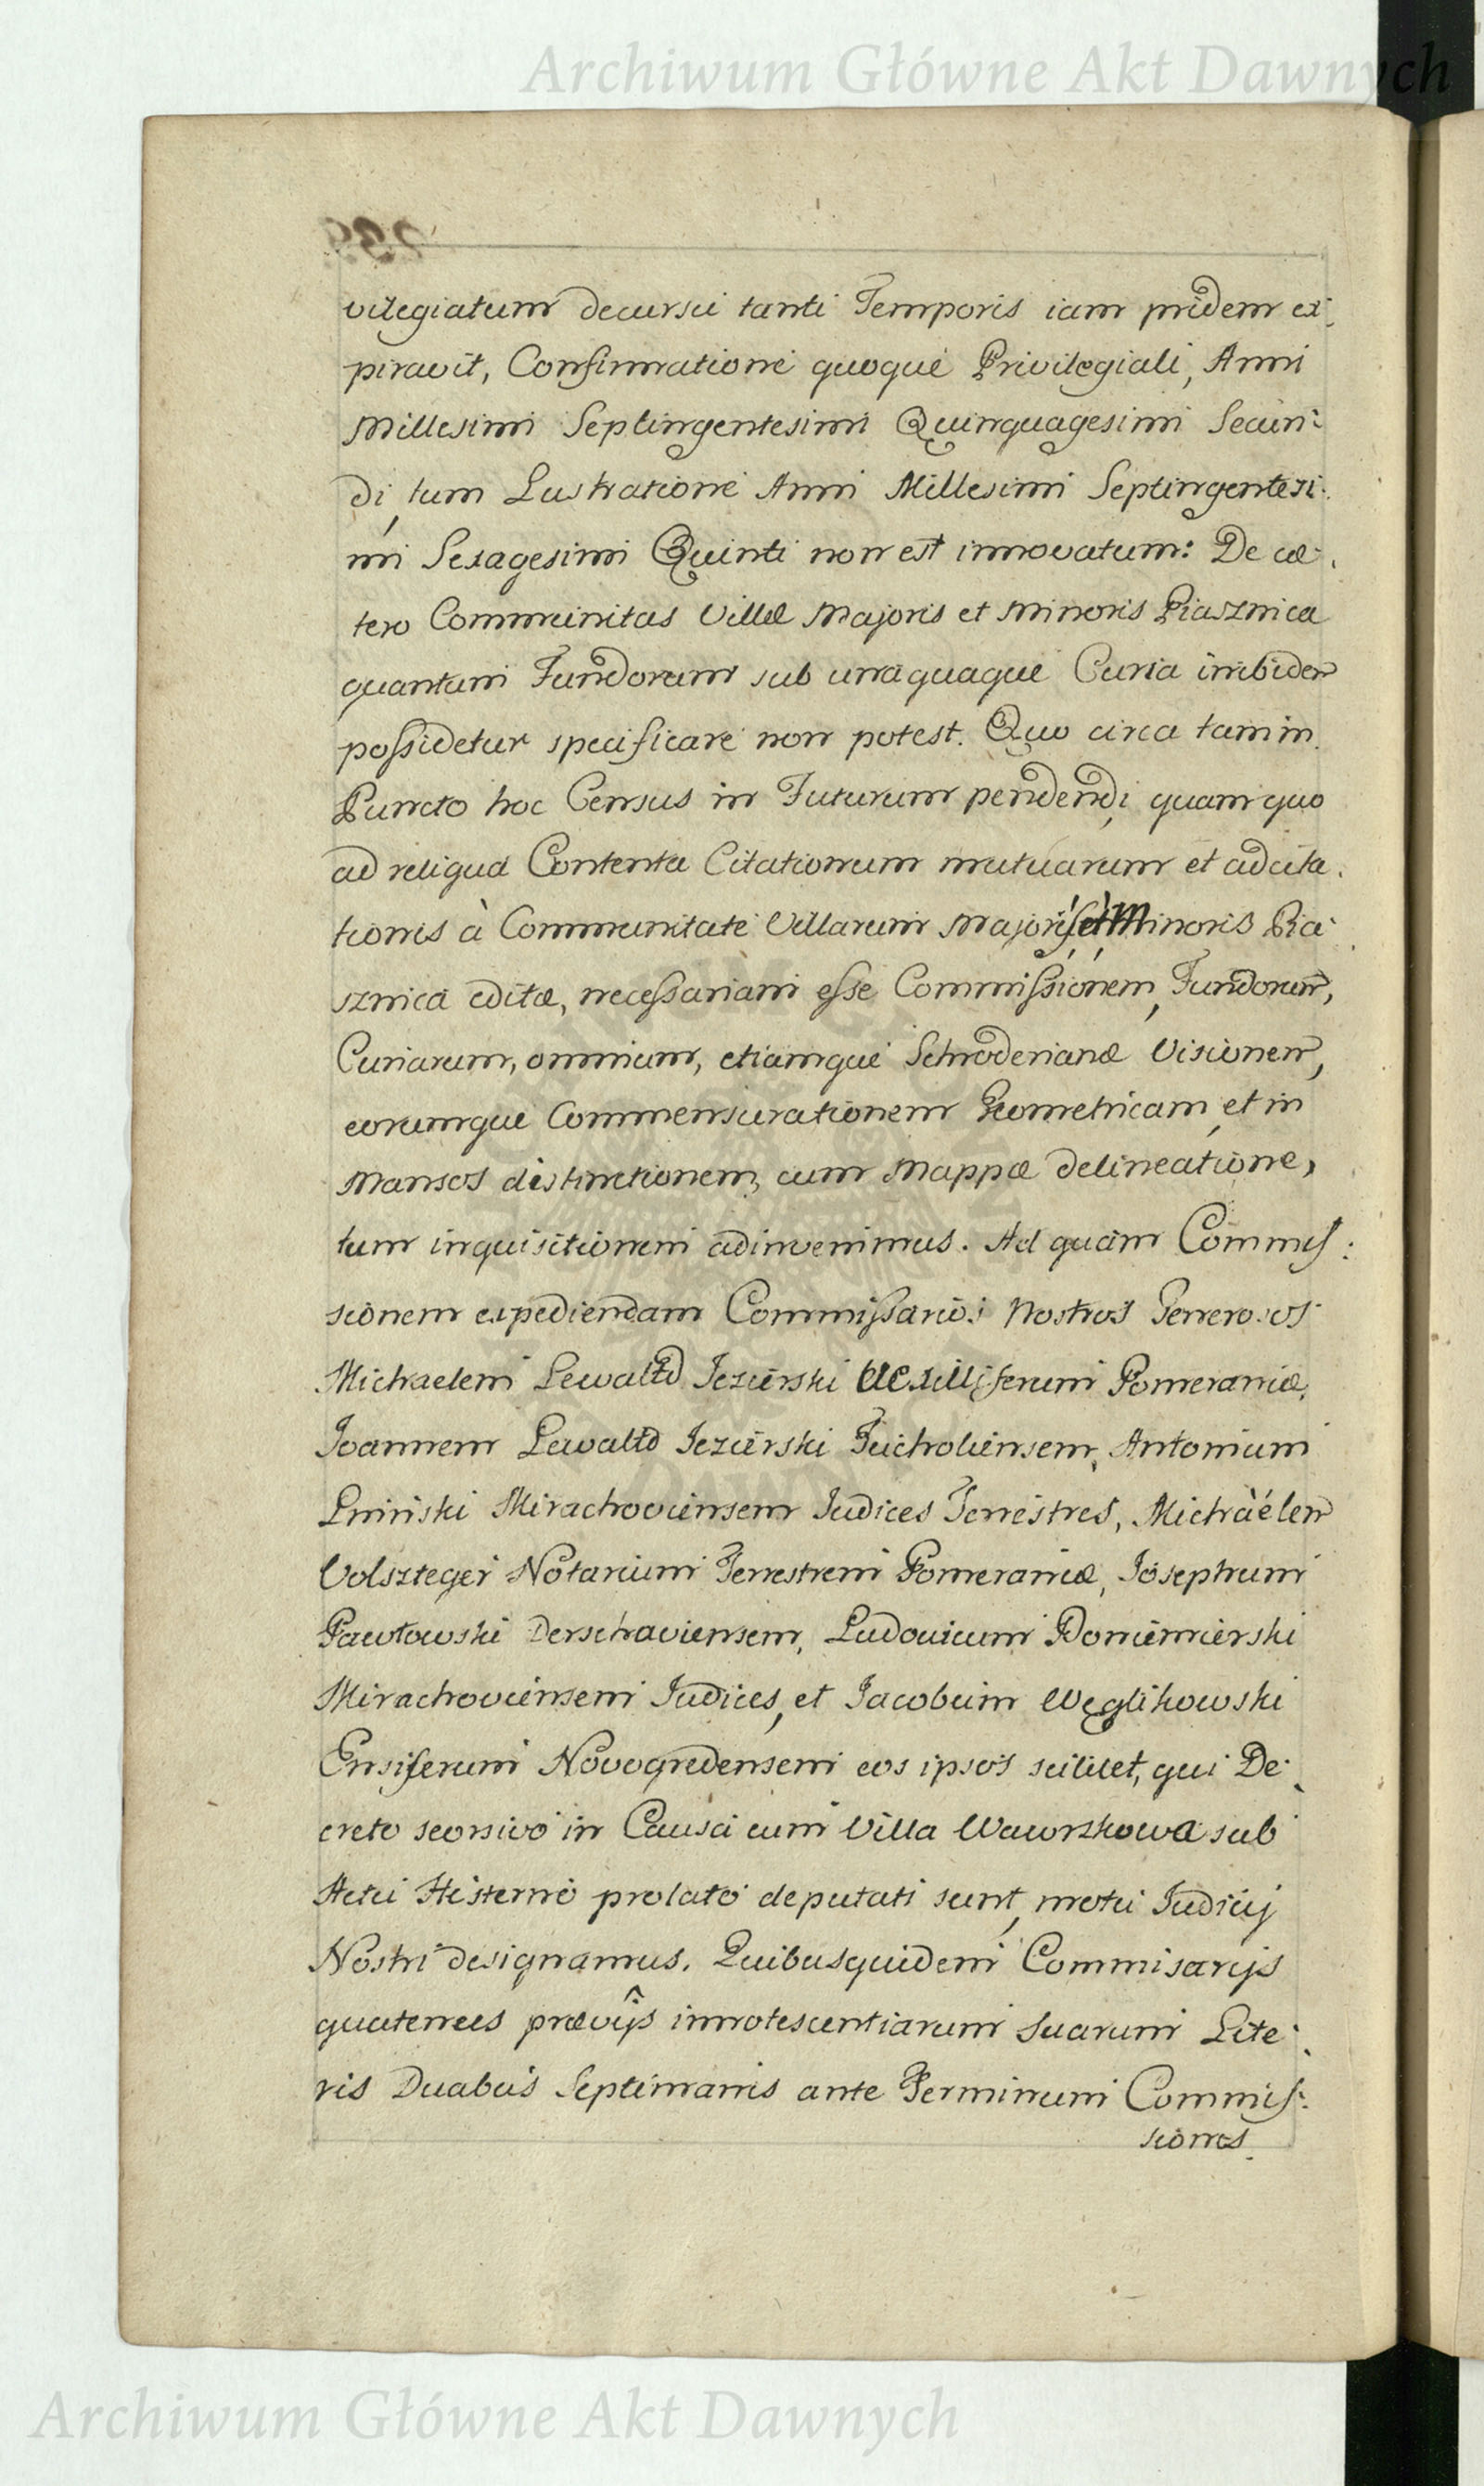 Archiwum Główne Akt Dawnych
vilegiatum decursu tanti Temporis iam pridem ex:
piravit, Confirmatione quoque Privilegiali, Anni
Millesimi Septingentesimi Quinquagesimi Secun:
di, tum Lustratione Anni Millesimi Septingentesi:
mi Sexagesimi Quinti non est innovatum: De cæ:
tero Communitas Villæ Majoris et Minoris Piasznica
quantum Fundorum sub unaquaque Curia inibidem
possidetur specificare non potest. Quo circa tam in
Puncto hoc Census in Futurum pendendi, quam quo
ad reliqua Contenta Citationum mutuarum et adcita:
tionis à Communitate Villarum Majoris et Minoris Pia:
sznica editæ, necessariam esse Commissionem, Fundorum,
Curiarum, omnium, etiamque Schroderianæ Visionem,
eorumque Commensurationem Geometricam, et in
Mansos distinctionem, cum Mappæ delineatione,
tum inquisitionem adinvenimus. Ad quam Commis:
sionem expediendam Commissarios Nostros Generosos
Michaelem Lewaltd Jezierski Vexilliferum Pomeraniæ,
Joannem Lewaltd Jezierski Tucholiensem, Antonium
Lniński Mirachoviensem Judices Terrestres, Michàélem
Volszteger Notarium Terrestrem Pomeraniæ, Josephum
Pawłowski Derschaviensem, Ludovicum Doniemierski
Mirachoviensem Judices, et Jacobum Węglikowski
Ensiferum Novogredensem eos ipsos scilicet, qui De:
creto seorsivo in Causa cum Villa Wawrzkowa sub
Actu Hesterno prolato deputati sunt, motu Judicij
Nostri designamus. Quibusquidem Commisarijs
quatenees prævijs innotescentiarum Suarum Lite:
ris Duabus Septimanis ante Terminum Commis:
sionis
Archiwum Główne Akt Dawnych